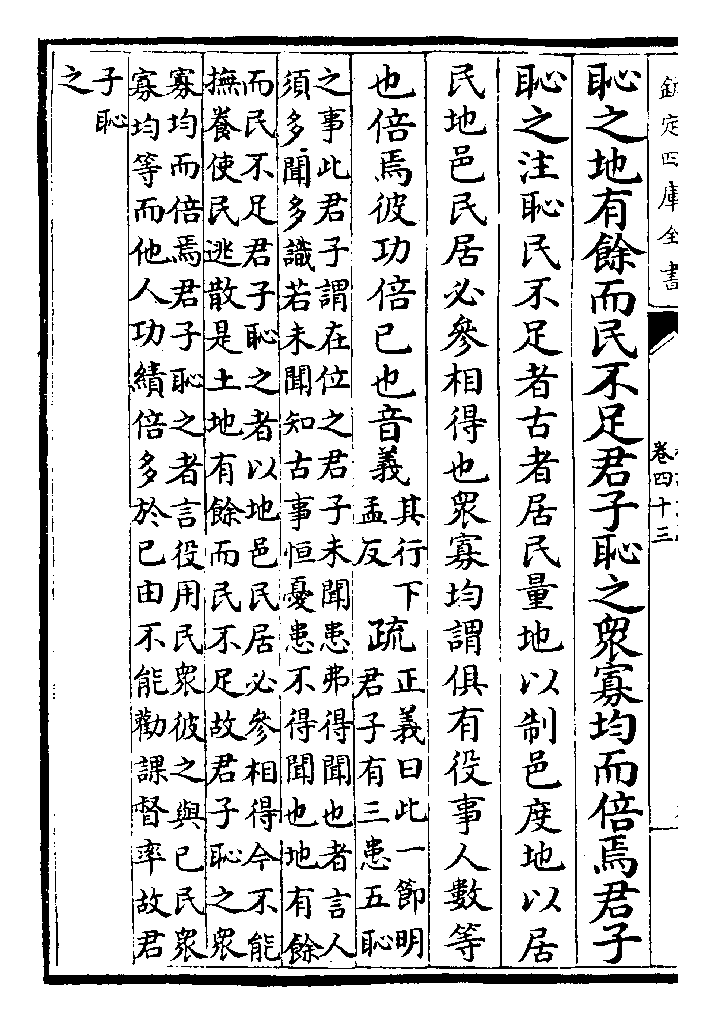 欽定四庫全書
卷四十三
恥之地有餘而民不足君子恥之衆寡均而倍焉君子
恥之注恥民不足者古者居民量地以制邑度地以居
民地邑民居必參相得也衆寡均謂俱有役事人數等
也倍焉彼功倍已也音義
其行下
孟反
疏
正義曰此一節明
君子有三患五恥
之事此君子謂在位之君子未聞患弗得聞也者言人
須多聞多識若未聞知古事恒憂患不得聞也地有餘
而民不足君子恥之者以地邑民居必參相得今不能
撫養使民逃散是土地有餘而民不足故君子恥之衆
寡均而倍焉君子恥之者言役用民衆彼之與已民衆
寡均等而他人功績倍多於已由不能勸課督率故君
子恥
之